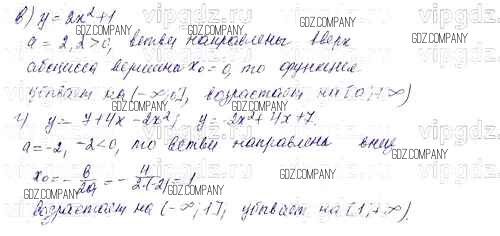 в) y = 2x² + 1
a = 2, 2 > 0, ветви направлены вверх
абсцисса вершины x₀ = 0, то функция
убывает на (-∞; 0], возрастает на [0; +∞)
4) y = 7 + 4x - 2x²; y = -2x² + 4x + 7.
a = -2, -2 < 0, то ветви направлены вниз
x₀ = - в/2a = - 4/2·(-2) = 1
возрастает на (-∞; 1], убывает на [1; +∞).
GDZ.COMPANY
vipgdz